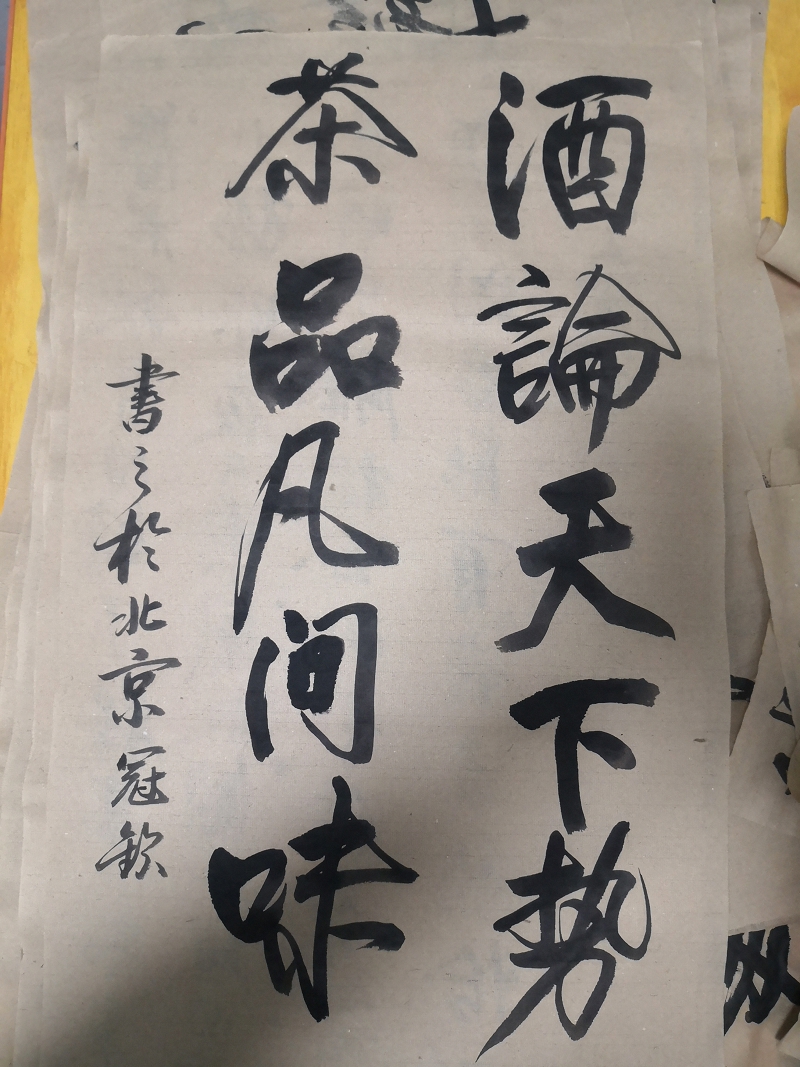 酒論天下勢
茶品凡间味
書之於北京冠欽